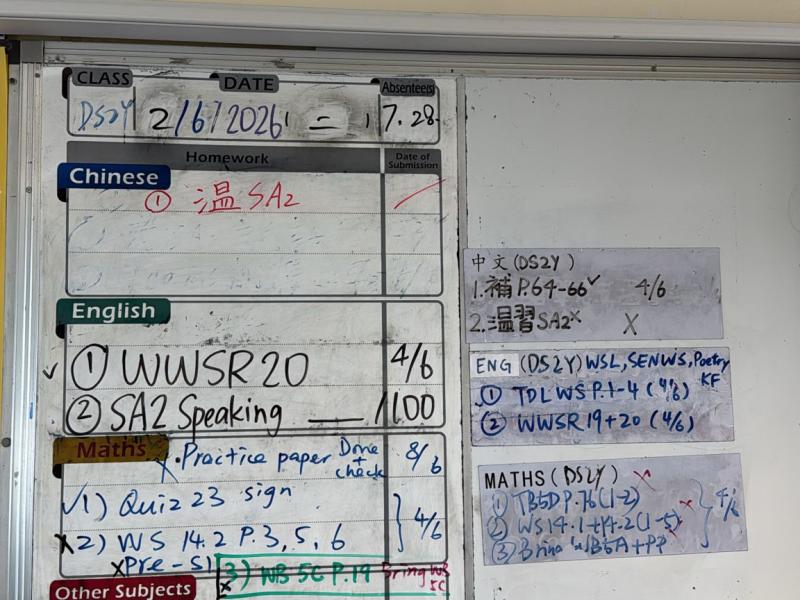 CLASS DATE Absentee(s)
DS2Y 2/6/2026 7.28
Homework Date of Submission
Chinese
① 温 SA2
English
✓ ① WWSR 20 4/6
② SA2 Speaking ___/100
Maths
Practice paper Done + check 8/6
✓1) Quiz 23 sign
x2) WS 14.2 P.3, 5, 6 } 4/6
x Pre-S1
3) WB 5C P.19 Bring WB 5C
Other Subjects
中文(DS2Y)
1.補P.64-66✓ 4/6
2.温習SA2x X
ENG (DS2Y) WSL, SENWS, Poetry
KF
① TDL WS P.1-4 (4/6)
② WWSR 19+20 (4/6)
MATHS (DS2Y)
① TB5D P.76 (1-2)
② WS 14.1+14.2 (1-5) } 4/6
③ Bring WB5A+PP